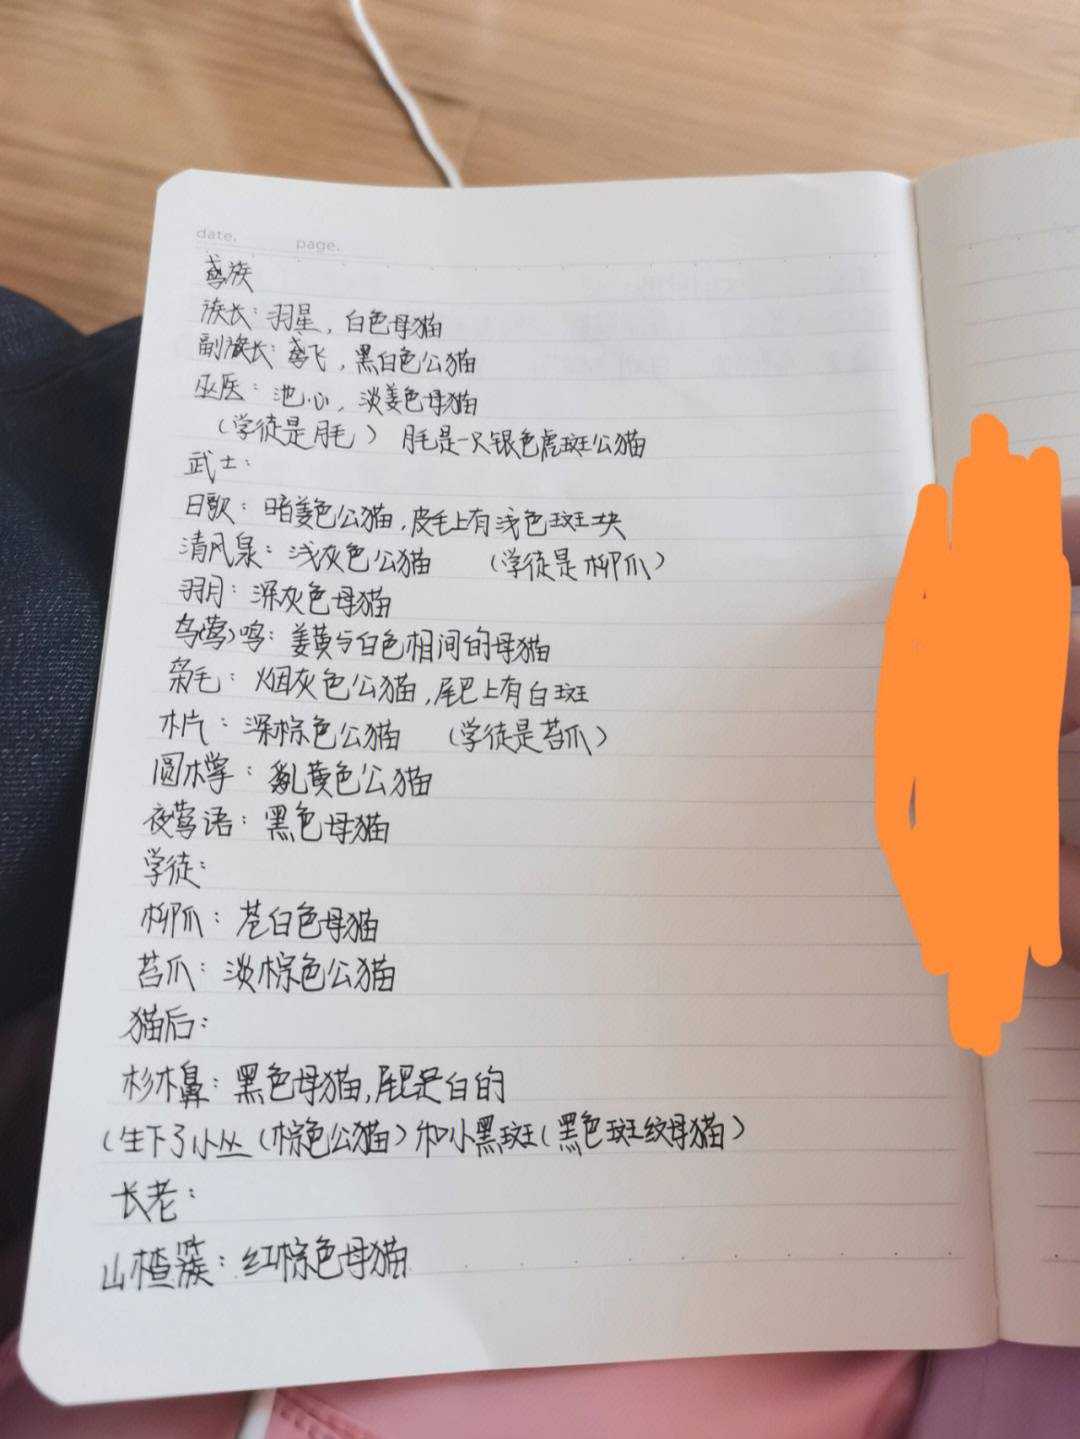 date.
page.
鸢族
族长：羽星，白色母猫
副族长：鸢飞，黑白色公猫
巫医：池心，淡姜色母猫
（学徒是月毛） 月毛是一只银色虎斑公猫
武士：
日歌：暗姜色公猫，皮毛上有浅色斑块
清风泉：浅灰色公猫 （学徒是柳爪）
羽月：深灰色母猫
鸟（莺）鸣：姜黄与白色相间的母猫
枭毛：烟灰色公猫，尾巴上有白斑
木片：深棕色公猫 （学徒是苔爪）
圆木掌：乱黄色公猫
夜莺语：黑色母猫
学徒：
柳爪：苍白色母猫
苔爪：淡棕色公猫
猫后：
杉木鼻：黑色母猫，尾尖是白的
（生下了小丛（棕色公猫）和小黑斑（黑色斑纹母猫）
长老：
山楂簇：红棕色母猫